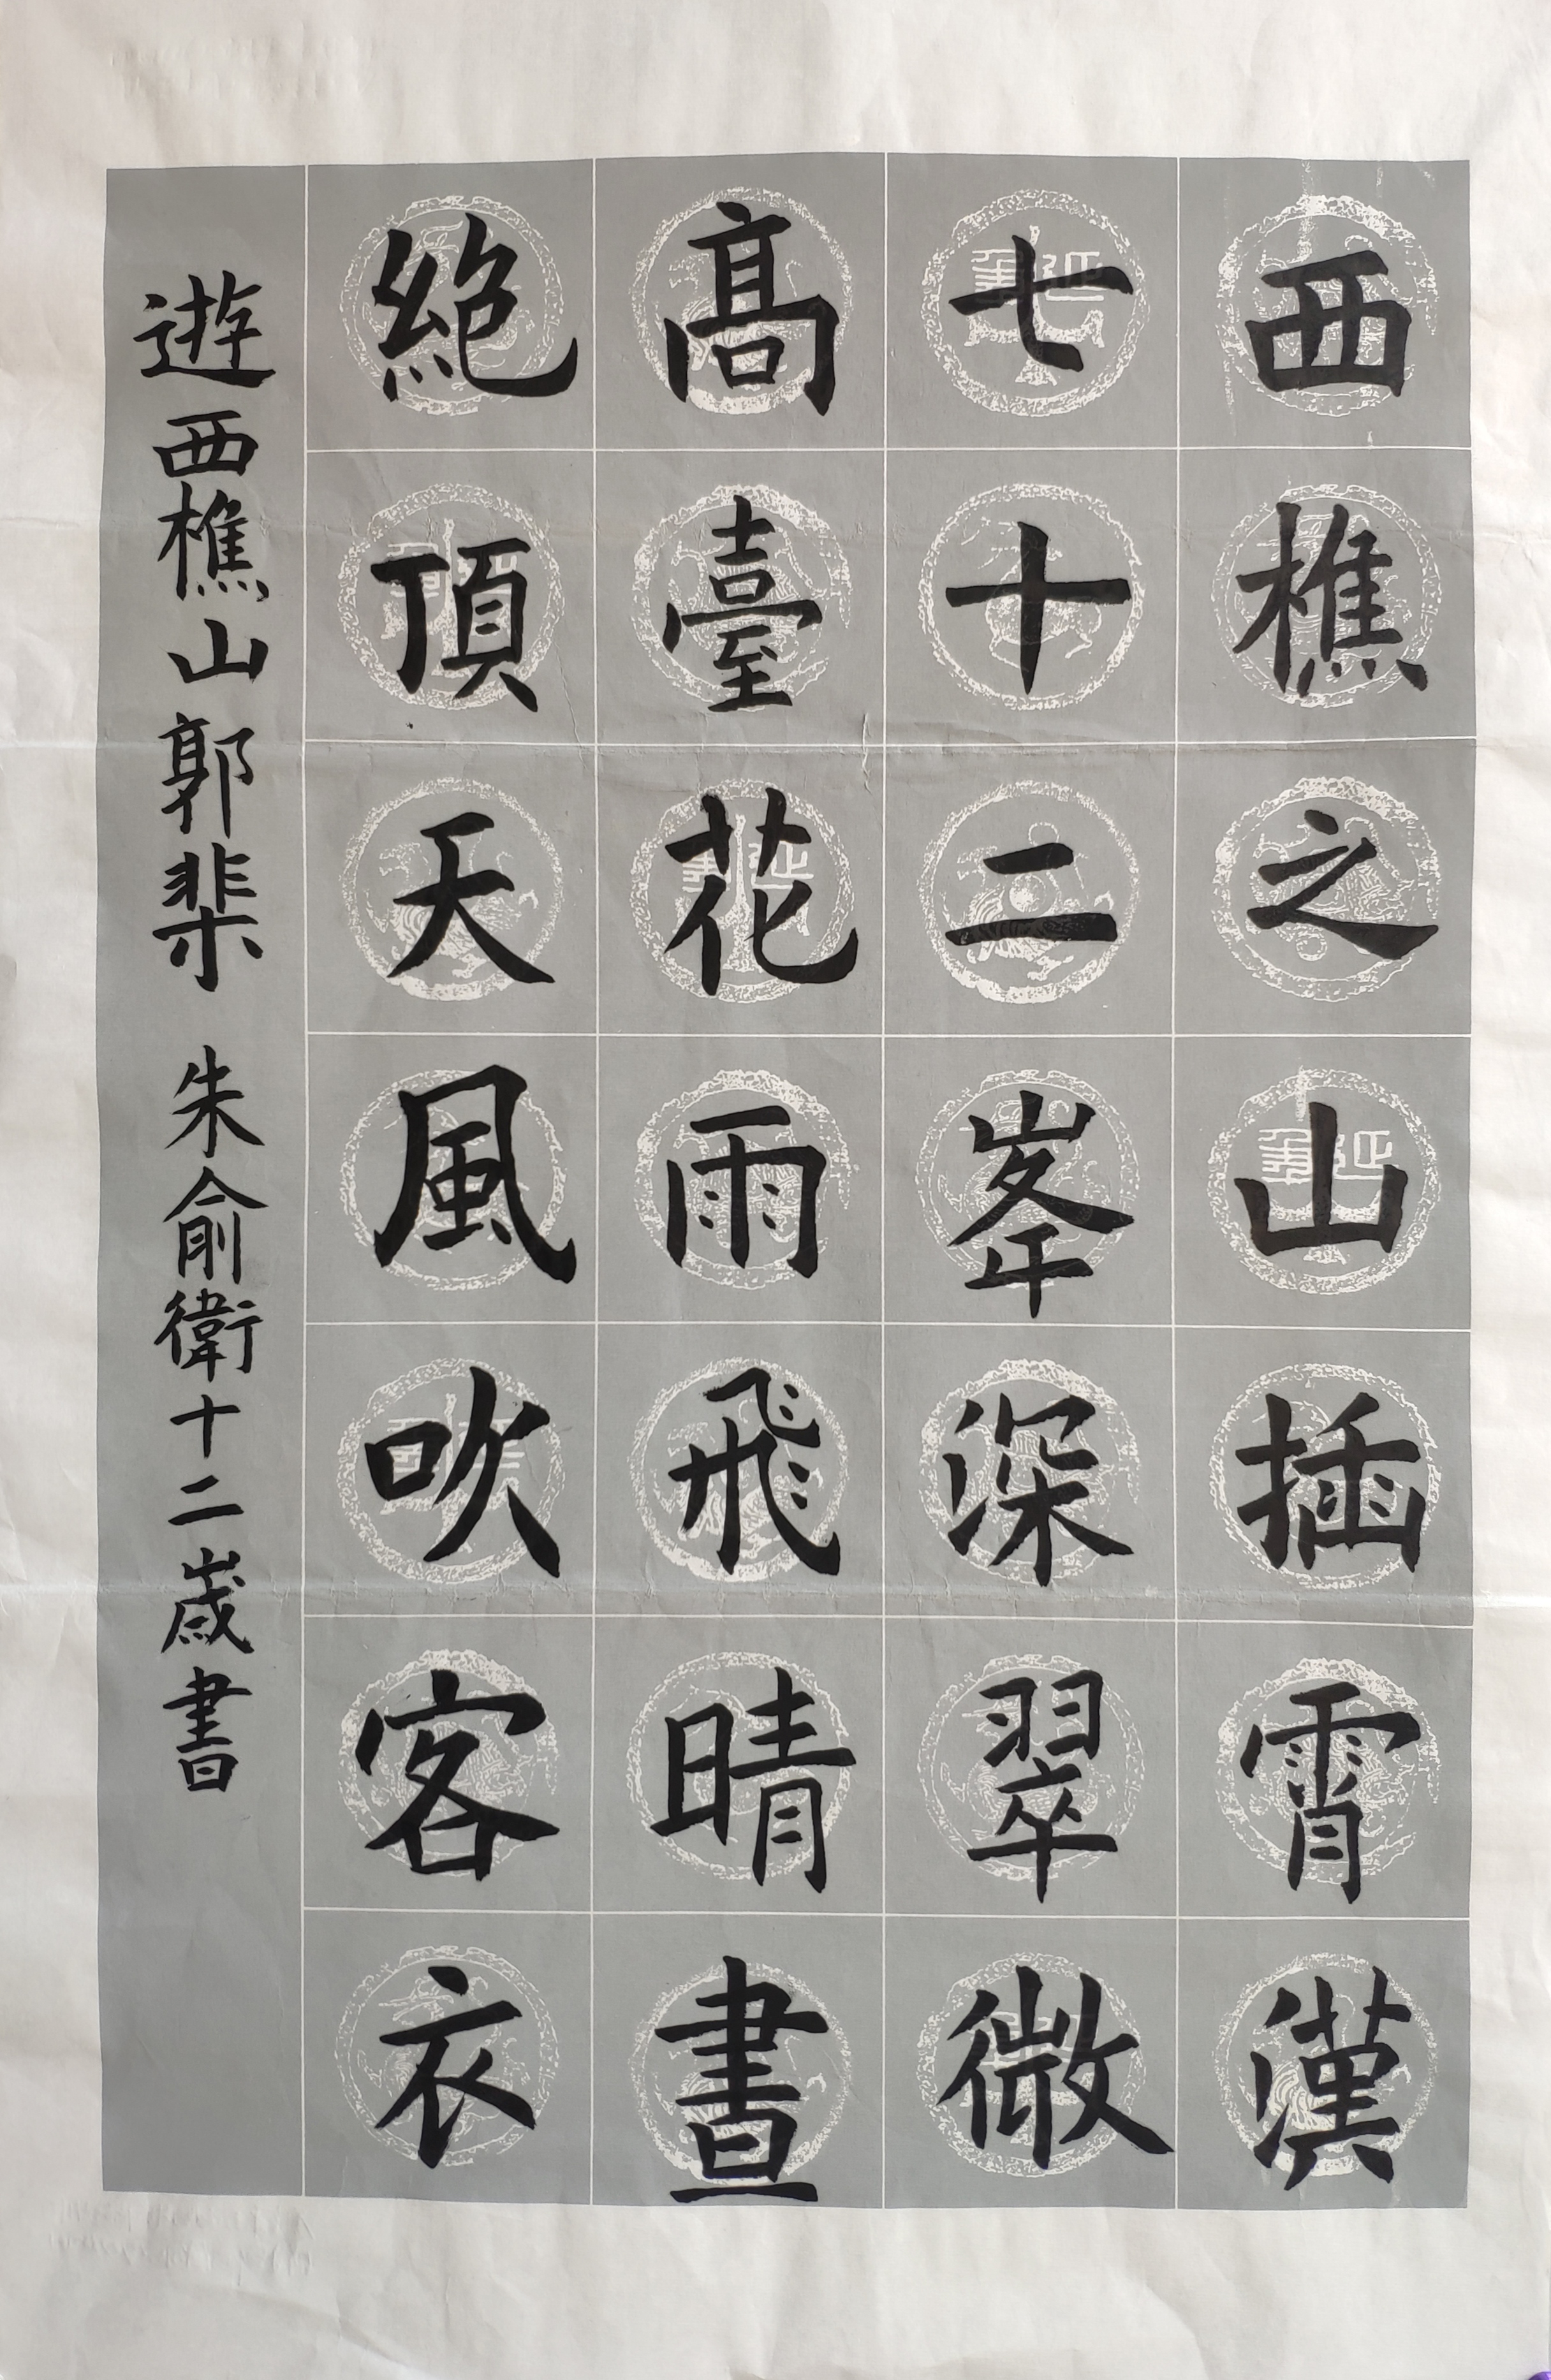 西樵之山插霄漢
七十二峯深翠微
高臺花雨飛晴晝
絶頂天風吹客衣
遊西樵山郭棐 朱俞衛十二歲書